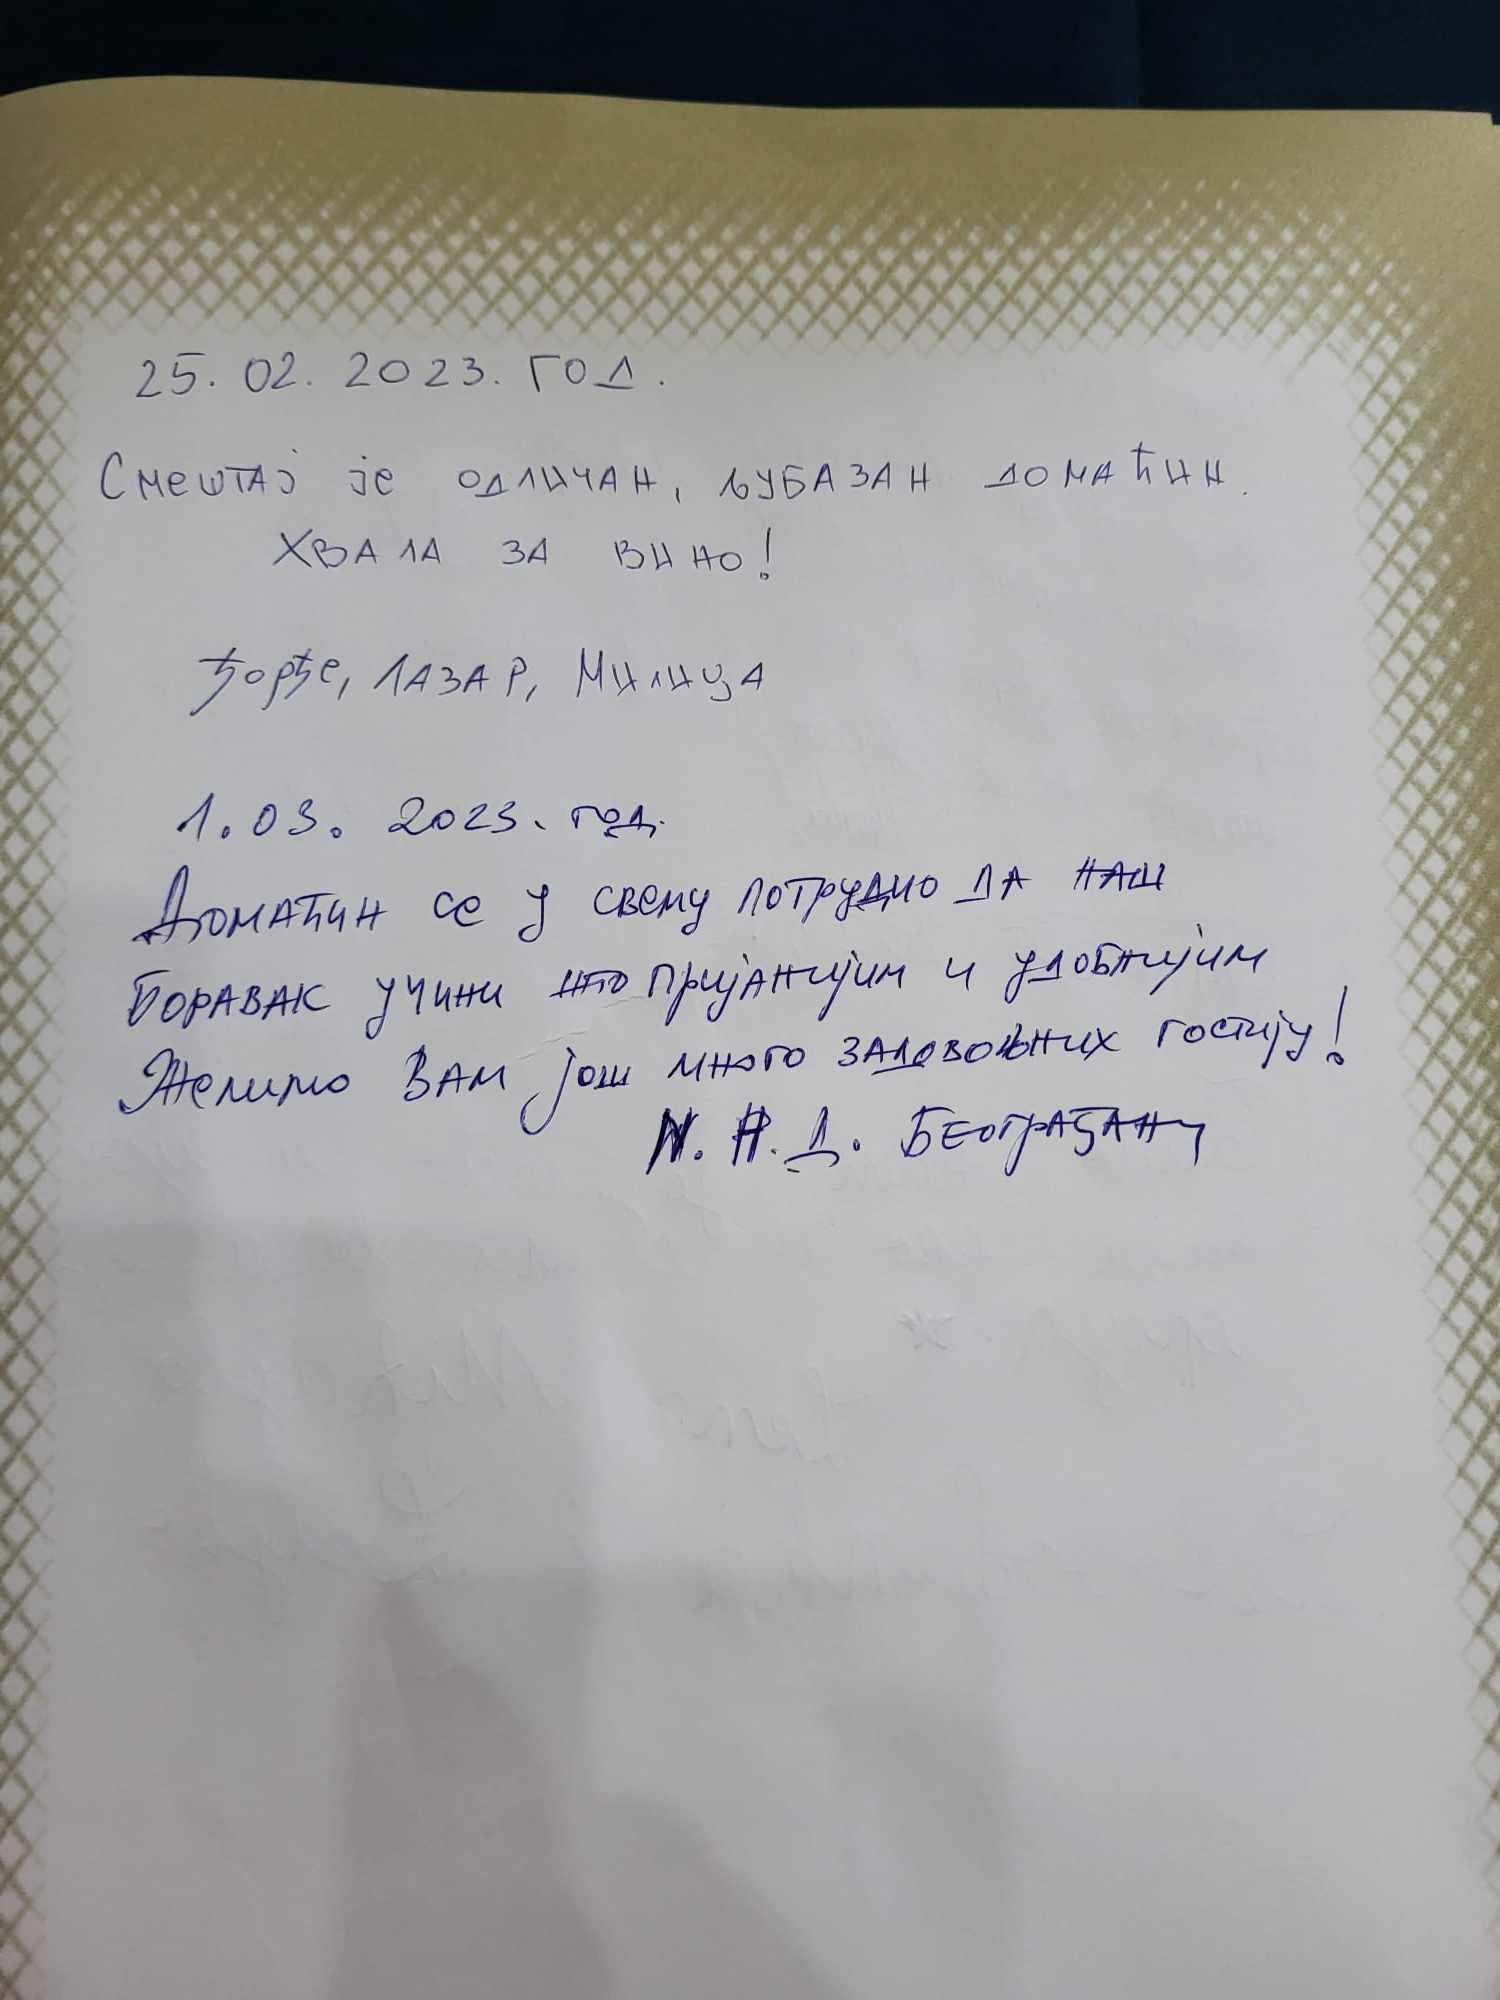 25. 02. 2023. ГОД.
Смештај је одличан, љубазан домаћин.
Хвала за вино!
Ђорђе, Лазар, Милица
1. 03. 2023. год.
Домаћин се у свему потрудио да наш
боравак учини што пријанијим и удобнијим
Желимо Вам још много задовољних гостију!
N. Н. Д. Београђани